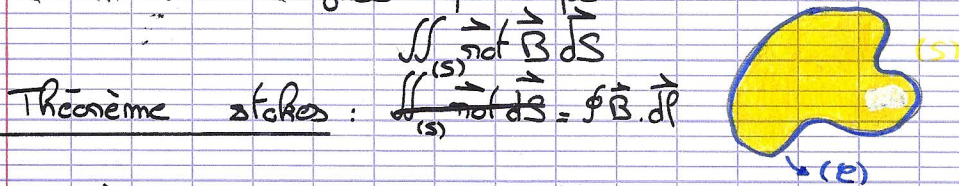 ∬(S) rot⃗ B⃗ dS⃗
Théorème stokes : ∬(S) rot⃗ dS⃗ = ∮ B⃗ . dl⃗
(S)
(C)